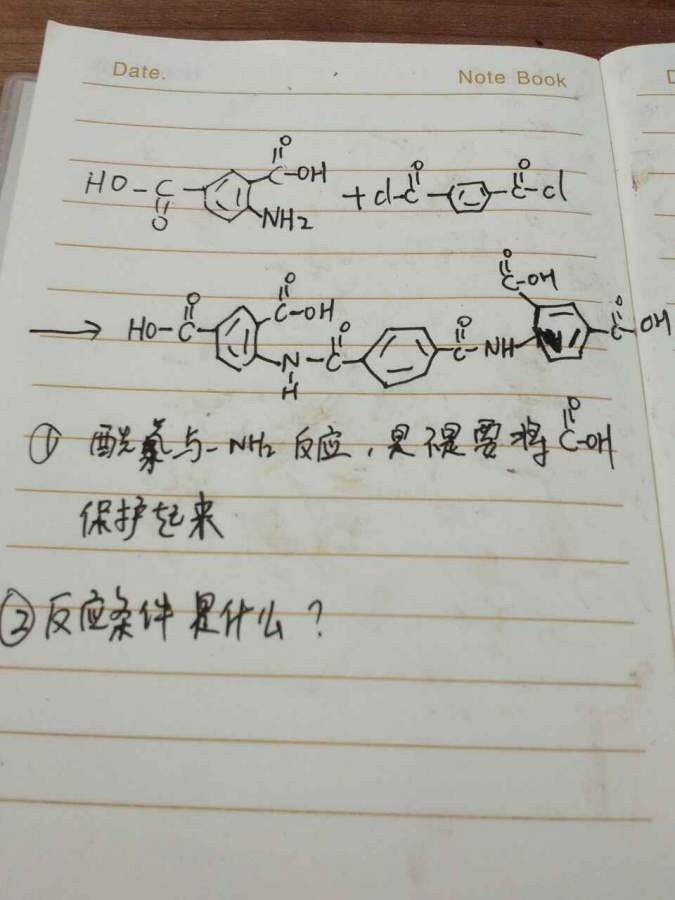 Date.
Note Book
O
HO-C
C-OH
O
NH2
+
O
cl-C
O
C-cl
O
C-OH
→
O
HO-C
O
C-OH
N
H
O
C
O
C-NH
O
C-OH
① 酰氯与-NH2反应,是不是需要将
O
C-OH
保护起来
②反应条件是什么?